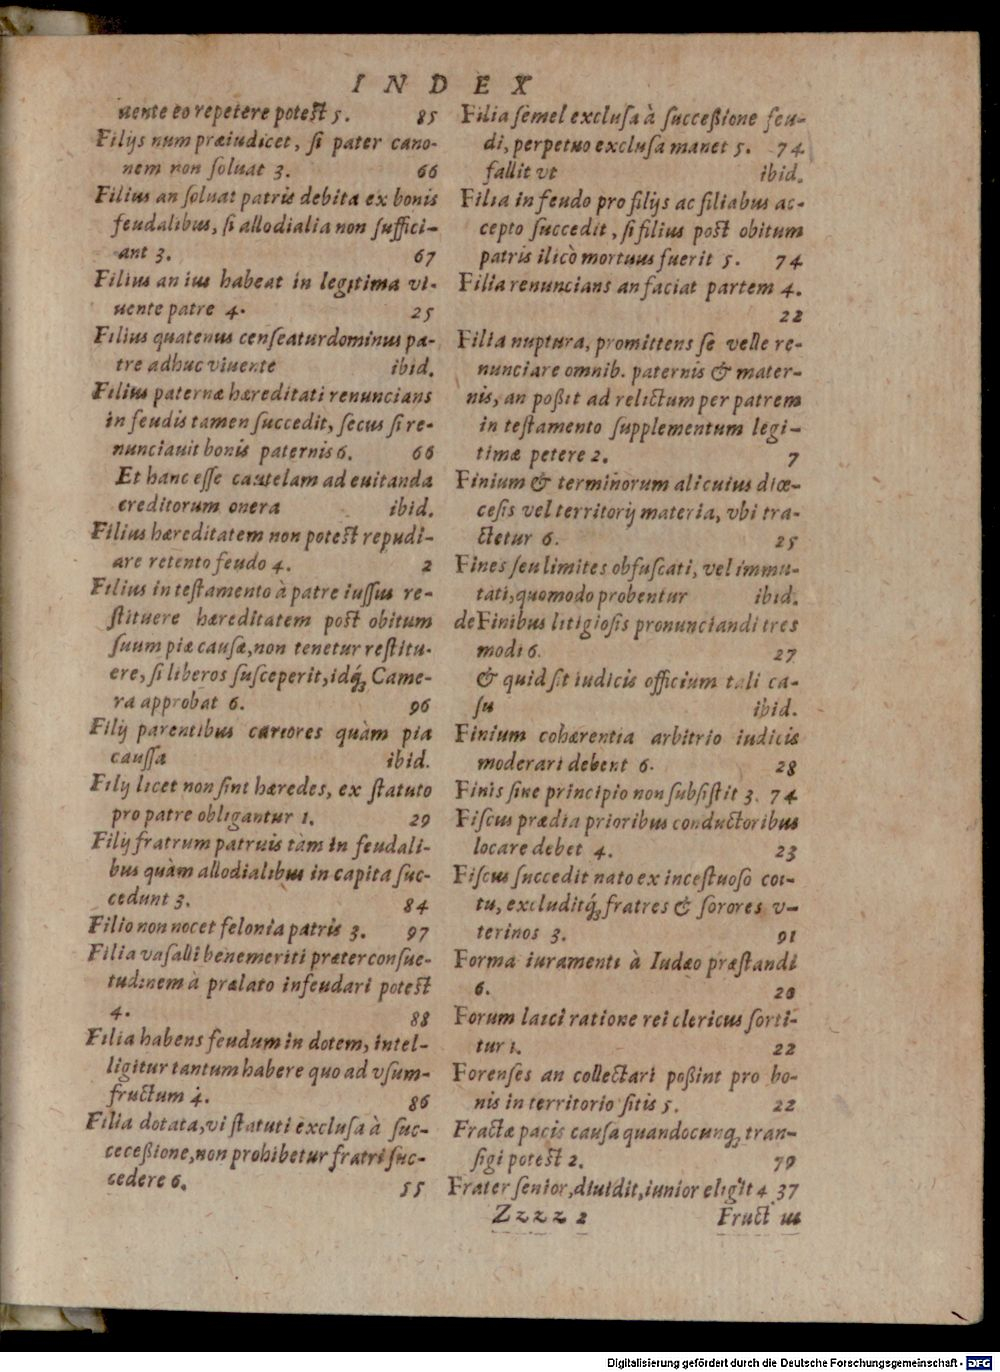 INDEX
uente eo repetere potest 5. 85
Filijs num præiudicet, si pater cano-
nem non soluat 3. 66
Filius an soluat patris debita ex bonis
feudalibus, si allodialia non suffici-
ant 3. 67
Filius an ius habeat in legitima vi-
uente patre 4. 25
Filius quatenus censeatur dominus pa-
tre adhuc viuente ibid.
Filius paternæ hæreditati renuncians
in feudis tamen succedit, secus si re-
nunciauit bonis paternis 6. 66
Et hanc esse cautelam ad euitanda
creditorum onera ibid.
Filius hæreditatem non potest repudi-
are retento feudo 4. 2
Filius in testamento à patre iussus re-
stituere hæreditatem post obitum
suum piæ causæ, non tenetur restitu-
ere, si liberos susceperit, idq́; Came-
ra approbat 6. 96
Filij parentibus cariores quàm pia
caussa ibid.
Filij licet non sint hæredes, ex statuto
pro patre obligantur 1. 29
Filij fratrum patruis tàm in feudali-
bus quàm allodialibus in capita suc-
cedunt 3. 84
Filio non nocet felonia patris 3. 97
Filia vasalli benemeriti præter consue-
tudinem à prælato infeudari potest
4. 88
Filia habens feudum in dotem, intel-
ligitur tantum habere quo ad vsum-
fructum 4. 86
Filia dotata, vi statuti exclusa à suc-
ceceßione, non prohibetur fratri suc-
cedere 6. 55
Filia semel exclusa à succeßione feu-
di, perpetuo exclusa manet 5. 74
fallit vt ibid.
Filia in feudo pro filijs ac filiabus ac-
cepto succedit, si filius post obitum
patris ilicò mortuus fuerit 5. 74
Filia renuncians an faciat partem 4.
22
Filia nuptura, promittens se velle re-
nunciare omnib. paternis & mater-
nis, an poßit ad relictum per patrem
in testamento supplementum legi-
timæ petere 2. 7
Finium & terminorum alicuius diœ-
cesis vel territorij materia, vbi tra-
ctetur 6. 25
Fines seu limites obfuscati, vel immu-
tati, quomodo probentur ibid.
de Finibus litigiosis pronunciandi tres
modi 6. 27
& quid sit iudicis officium tali ca-
su ibid.
Finium cohærentia arbitrio iudicis
moderari debent 6. 28
Finis sine principio non subsistit 3. 74
Fiscus prædia prioribus conductoribus
locare debet 4. 23
Fiscus succedit nato ex incestuoso coi-
tu, excluditq́; fratres & sorores v-
terinos 3. 91
Forma iuramenti à Iudæo præstandi
6. 20
Forum laici ratione rei clericus sorti-
tur 1. 22
Forenses an collectari poßint pro bo-
nis in territorio sitis 5. 22
Fractæ pacis causa quandocunq; tran-
sigi potest 2. 79
Frater senior, diuidit, iunior eligit 4. 37
Zzzz 2 Fructus
Digitalisierung gefördert durch die Deutsche Forschungsgemeinschaft - DFG